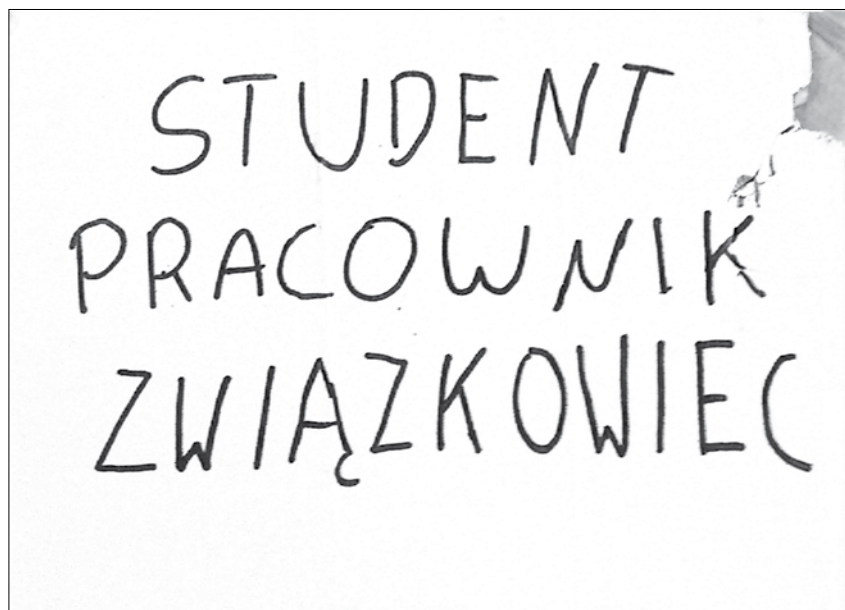 STUDENT
PRACOWNIK
ZWIĄZKOWIEC